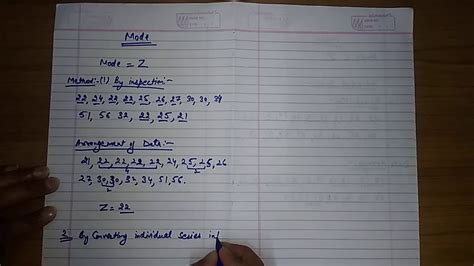 Mode
Mode = Z
Method:-(1) By inspection:-
22, 24, 22, 22, 25, 26, 27, 30, 30, 34
51, 56 32, 22, 25, 21
Arrangement of Data:-
21, 22, 22, 22, 22, 24, 25, 25, 26
4 2
27, 30, 30, 32, 34, 51, 56.
2
Z = 22
2. By Converting individual series in